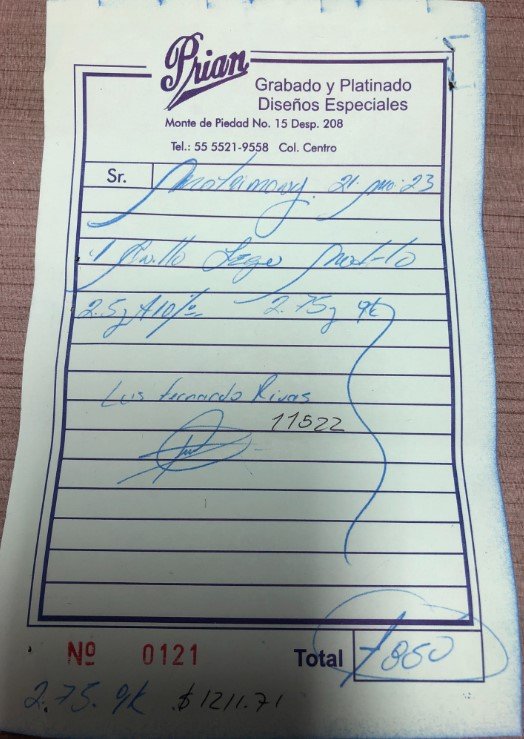 Prian
Grabado y Platinado
Diseños Especiales
Monte de Piedad No. 15 Desp. 208
Tel.: 55 5521-9558 Col. Centro
Sr. Matrimony. 21. 23
1 Anillo Lego
2.5g 2.75g 9k
Luis Fernando Rivas
11522
Nº 0121 Total 850
2.75. 9k $1211.71